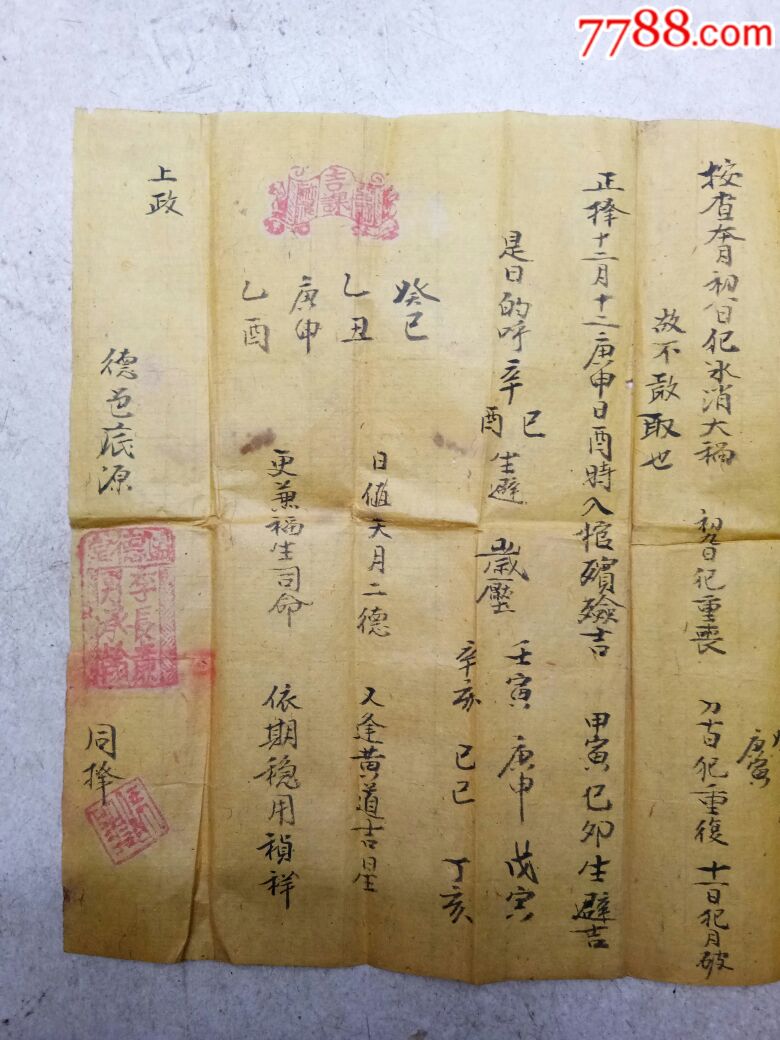 7788.com
庚寅
按查本月初八日犯冰消大禍 初九日犯重喪 初十日犯重復 十一日犯月破
故不敢取也
正擇十二月十二庚申日酉時入棺殯殮吉 甲寅已卯生避吉
是日的呼辛巳酉生避 歲壓 壬寅 庚申 戊寅
辛亥 已巳 丁亥
吉課
癸巳 日值天月二德 又逢黃道吉星
乙丑
庚申 更兼福生司命 依期穩用禎祥
乙酉
上政
德邑底源
李長青
同擇